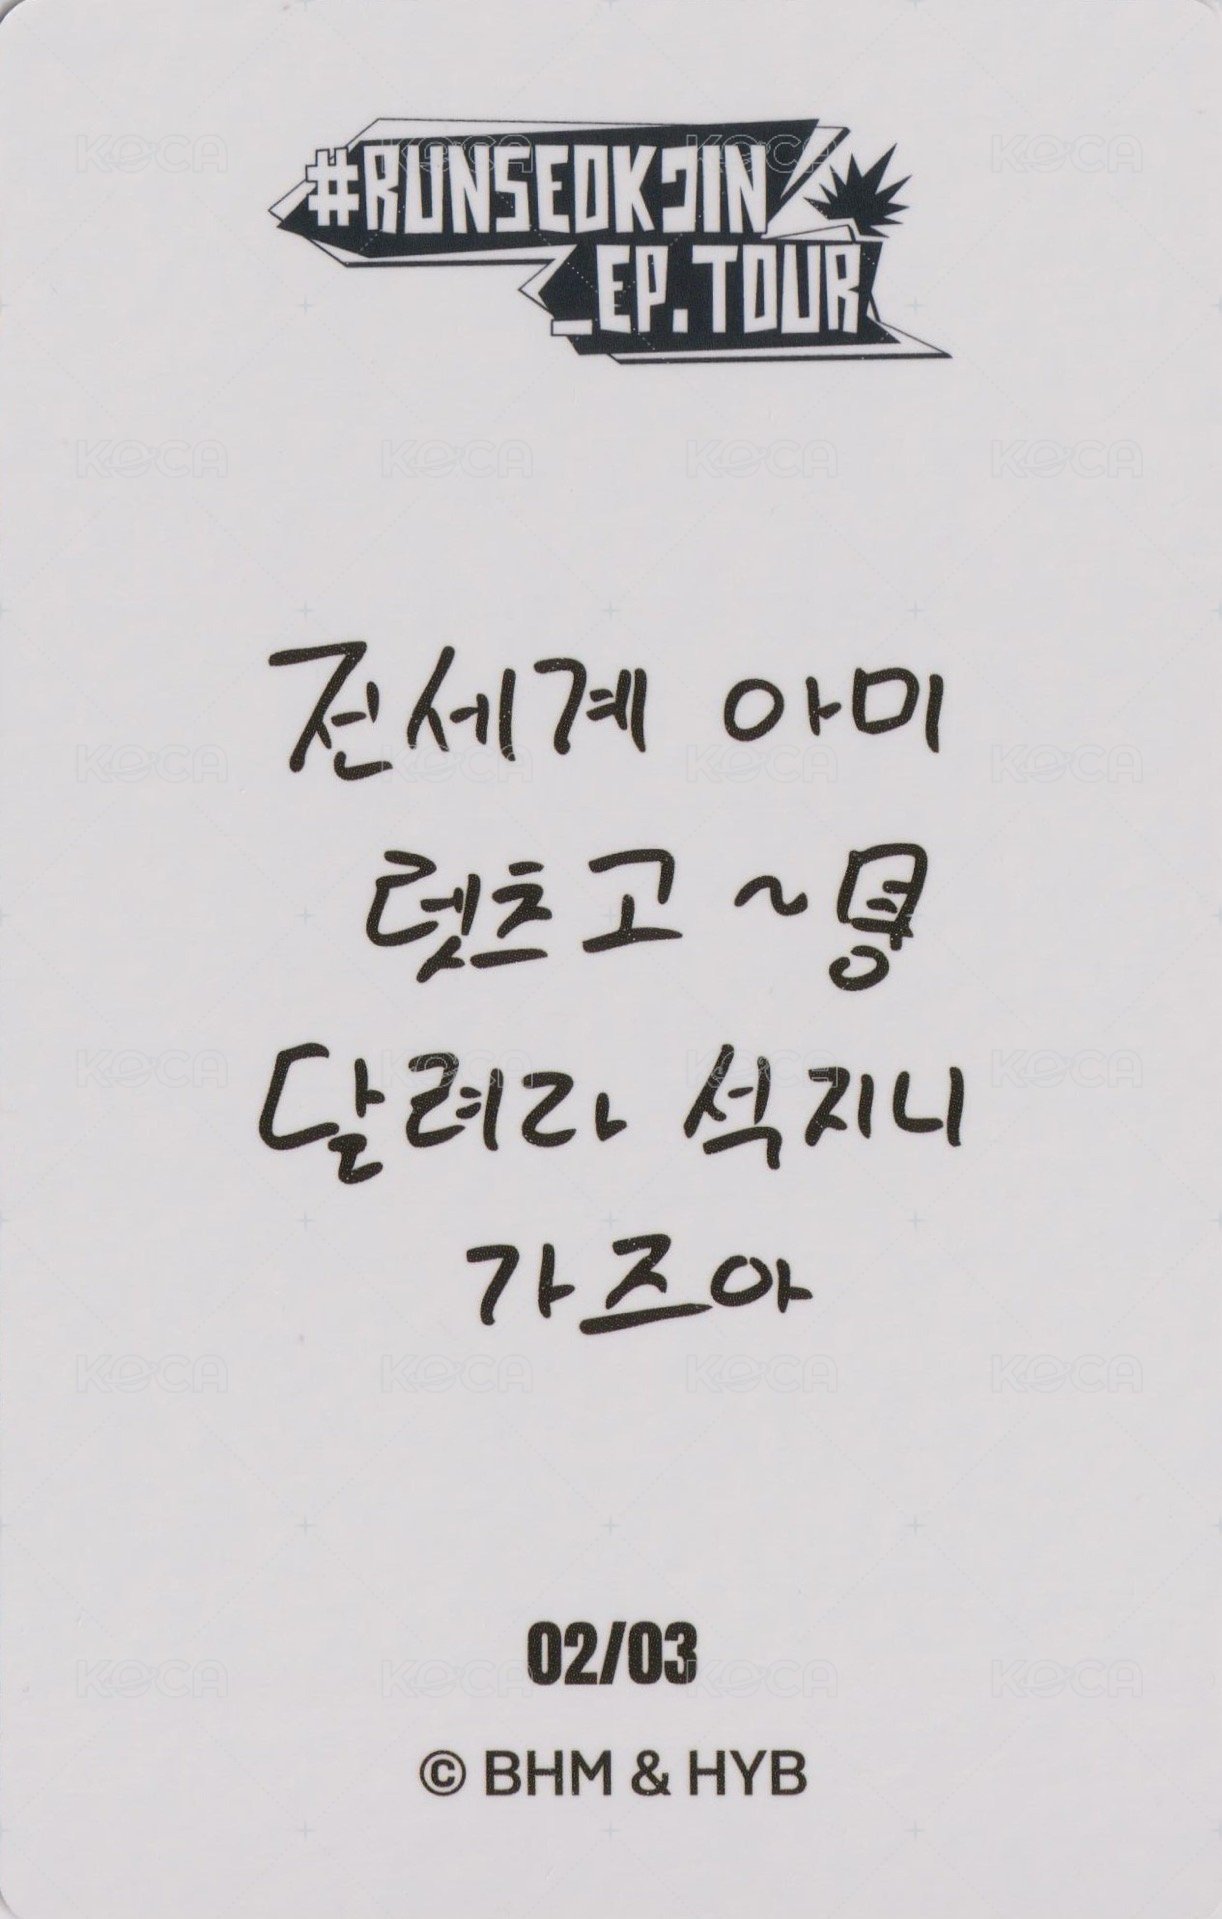 #RUNSEOKJIN
_EP.TOUR
전세계 아미
렛츠고~
달려라 석지니
가즈아
02/03
© BHM & HYB